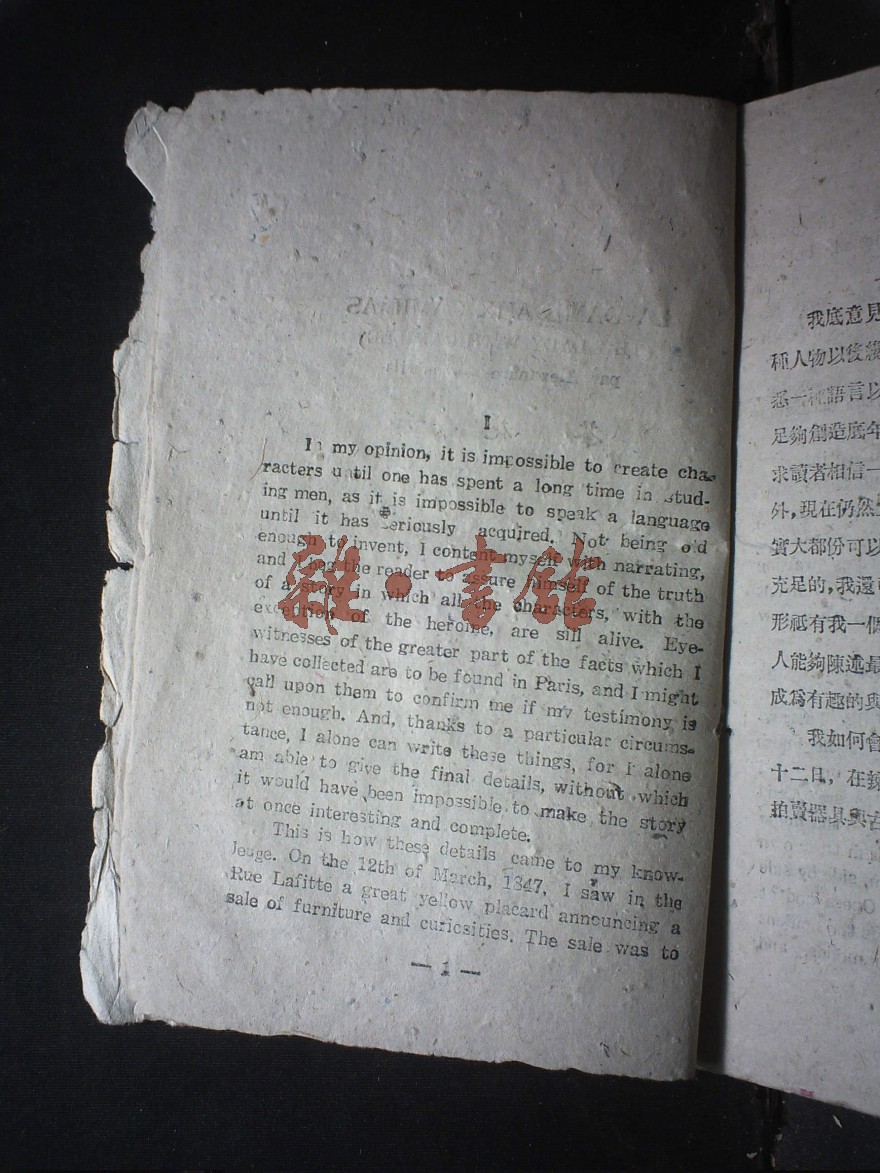 I
In my opinion, it is impossible to create cha-
racters until one has spent a long time in stud-
ing men, as it is impossible to speak a language
until it has seriously acquired. Not being old
enough to invent, I content myself with narrating,
and I beg the reader to assure himself of the truth
of a story in which all the characters, with the
exception of the heroine, are sill alive. Eye-
witnesses of the greater part of the facts which I
have collected are to be found in Paris, and I might
call upon them to confirm me if my testimony is
not enough. And, thanks to a particular circums-
tance, I alone can write these things, for I alone
am able to give the final details, without which
it would have been impossible to make the story
at once interesting and complete.
This is how these details came to my know-
ledge. On the 12th of March, 1847, I saw in the
Rue Lafitte a great yellow placard announcing a
sale of furniture and curiosities. The sale was to
— 1 —
雜·書館
我底意見
種人物以後纔
悉一種語言以
足夠創造底年
求讀者相信一
外,現在仍然
實大都份可以
充足的,我還
形祇有我一個
人能夠陳述最
成爲有趣的與
我如何會
十二日,在
拍賣器具與古